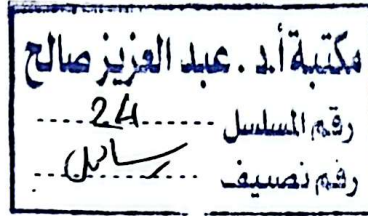 مكتبة أ.د. عبد العزيز صالح
رقم المسلسل ........24........
رقم تصنيف ....رسائل....